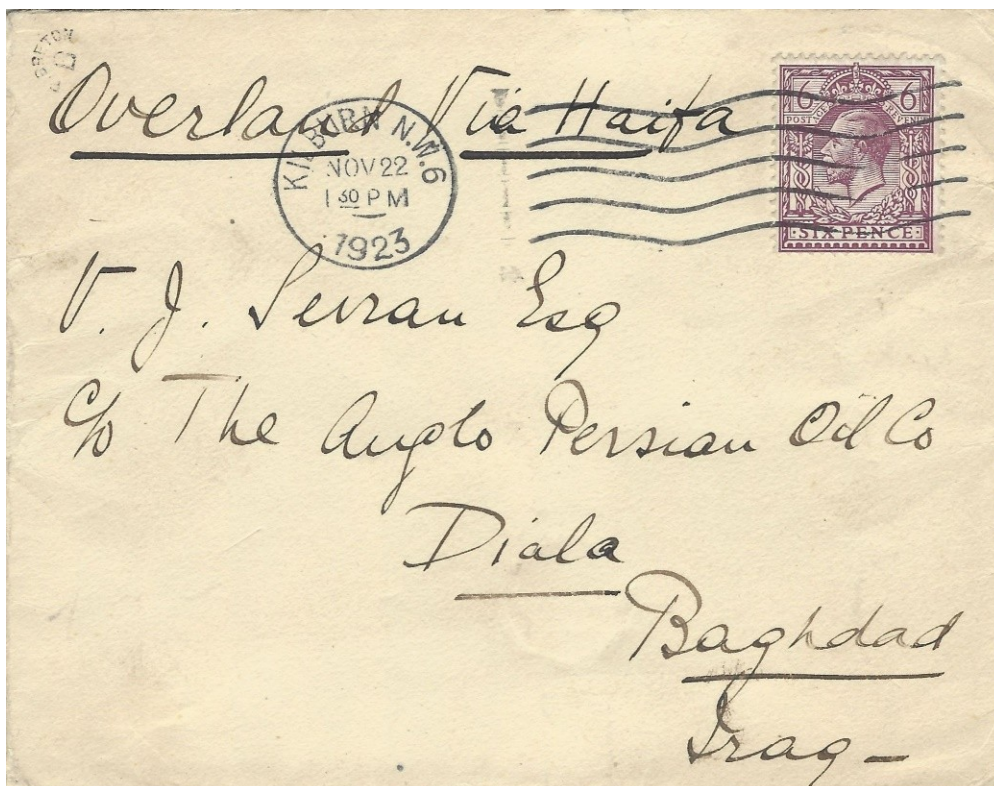 Overland Via Haifa
KILBURN N.W.6
NOV 22
1 30 PM
1923
6 6
POSTAGE REVENUE
SIX PENCE
V. J. Sevran Esq
c/o The Anglo Persian Oil Co
Diala
Baghdad
Iraq